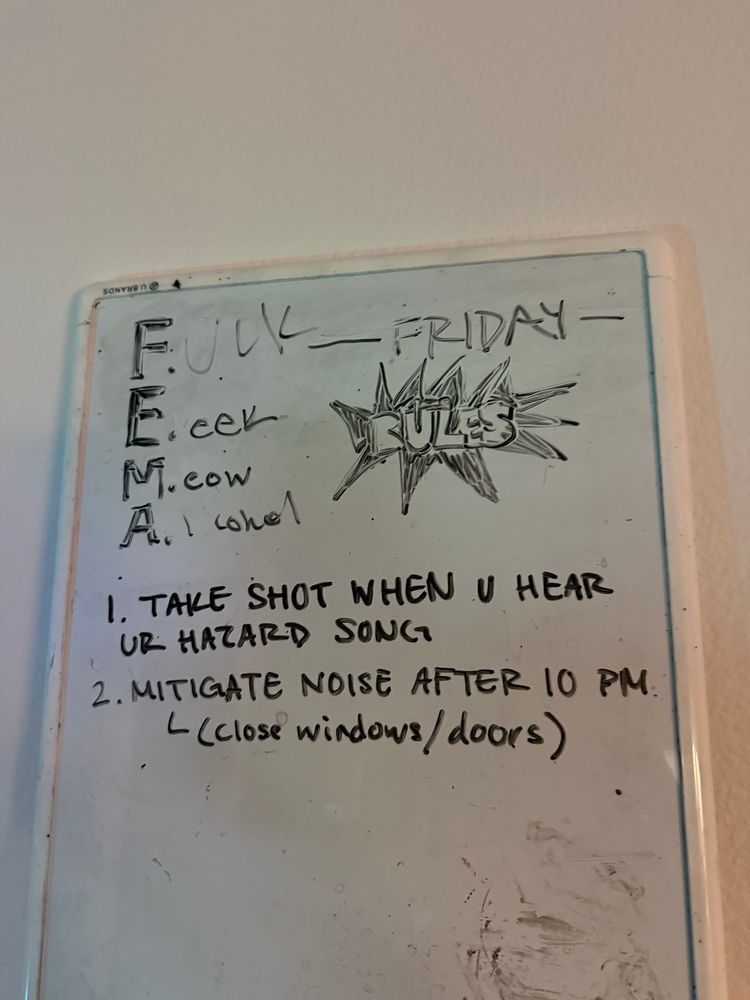 U BRANDS
F.UCK — FRIDAY —
E.eek
RULES
M.eow
A.lcohol
1. TAKE SHOT WHEN U HEAR
UR HAZARD SONG
2. MITIGATE NOISE AFTER 10 PM.
(close windows/doors)